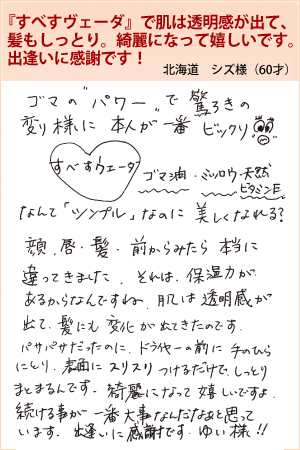 『すべすヴェーダ』で肌は透明感が出て、
髪もしっとり。綺麗になって嬉しいです。
出逢いに感謝です！
北海道　シズ様（60才）
ゴマの"パワー"で驚ろきの
変り様に本人が一番ビックリ
すべすヴェーダ
ゴマ油・ミツロウ・天然
ビタミンE
なんて「シンプル」なのに美しくなれる?
顔、唇・髪・前からみたら本当に
違ってきました。それは、保湿力が
あるからなんですね。肌は透明感が
出て、髪にも変化が出てきたのです。
パサパサだったのに、ドライヤーの前に手のひら
にとり、表面にスリスリつけるだけで、しっとり
まとまるんです。綺麗になって嬉しいですよ。
続ける事が一番大事なんだなあと思って
います。出逢いに感謝です。ゆい様!!